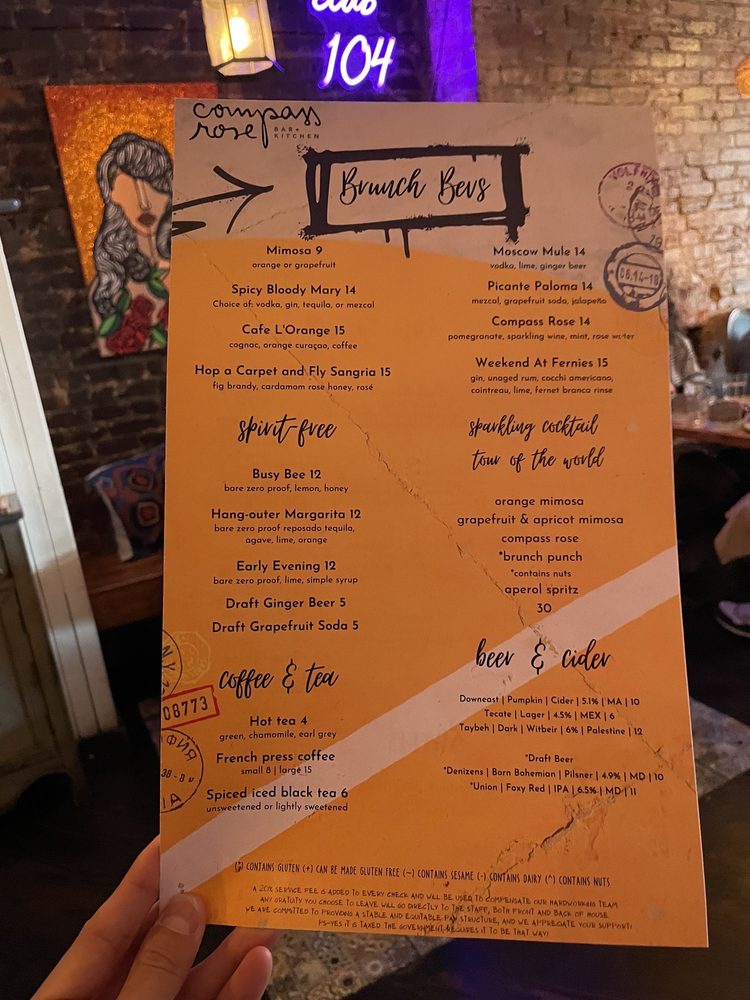 club
104
compass
rose BAR+
KITCHEN
Brunch Bevs
Mimosa 9
orange or grapefruit
Spicy Bloody Mary 14
Choice of: vodka, gin, tequila, or mezcal
Cafe L'Orange 15
cognac, orange curaçao, coffee
Hop a Carpet and Fly Sangria 15
fig brandy, cardamom rose honey, rosé
spirit-free
Busy Bee 12
bare zero proof, lemon, honey
Hang-outer Margarita 12
bare zero proof reposado tequila,
agave, lime, orange
Early Evening 12
bare zero proof, lime, simple syrup
Draft Ginger Beer 5
Draft Grapefruit Soda 5
coffee & tea
Hot tea 4
green, chamomile, earl grey
French press coffee
small 8 | large 15
Spiced iced black tea 6
unsweetened or lightly sweetened
Moscow Mule 14
vodka, lime, ginger beer
Picante Paloma 14
mezcal, grapefruit soda, jalapeño
Compass Rose 14
pomegranate, sparkling wine, mint, rose water
Weekend At Fernies 15
gin, unaged rum, cocchi americano,
cointreau, lime, fernet branca rinse
sparkling cocktail
tour of the world
orange mimosa
grapefruit & apricot mimosa
compass rose
*brunch punch
*contains nuts
aperol spritz
30
beer & cider
Downeast | Pumpkin | Cider | 5.1% | MA | 10
Tecate | Lager | 4.5% | MEX | 6
Taybeh | Dark | Witbeir | 6% | Palestine | 12
*Draft Beer
*Denizens | Born Bohemian | Pilsner | 4.9% | MD | 10
*Union | Foxy Red | IPA | 6.5% | MD | 11
08773
06.14-18
CONTAINS GLUTEN (+) CAN BE MADE GLUTEN FREE (~) CONTAINS SESAME (-) CONTAINS DAIRY (^) CONTAINS NUTS
A 20% SERVICE FEE IS ADDED TO EVERY CHECK AND WILL BE USED TO COMPENSATE OUR HARDWORKING TEAM
ANY GRATUITY YOU CHOOSE TO LEAVE WILL GO DIRECTLY TO THE STAFF, BOTH FRONT AND BACK OF HOUSE
WE ARE COMMITTED TO PROVIDING A STABLE AND EQUITABLE PAY STRUCTURE, AND WE APPRECIATE YOUR SUPPORT!
PS-YES IT IS TAXED THE GOVERNMENT REQUIRES IT TO BE THAT WAY!